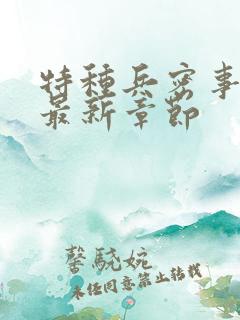 特种兵密事
最新章节
馨駓婉
未经同意禁止转载